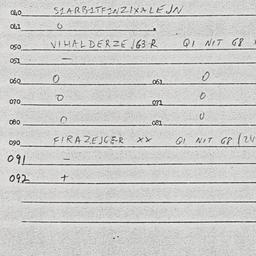 040 S1ARB1TF1NZIXALEJN
041 0
050 VIHALDERZEJG3R Q1 NIT G8
051 —
060 0 061 0
070 0 071 0
080 0 081 0
090 FIRAZEJGER XX Q1 NIT G8 /24
091 —
092 +